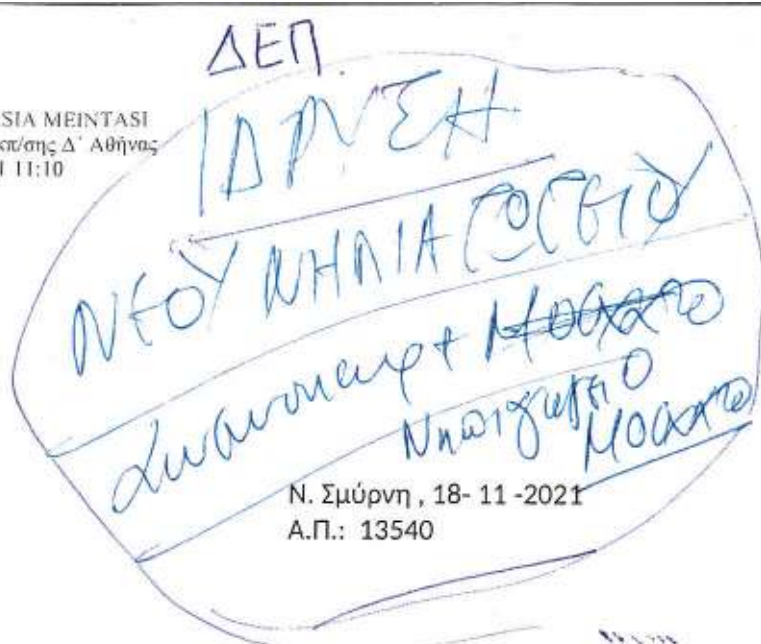 ΔΕΠ
SIA MEINTASI
κπ/σης Δ΄ Αθήνας
11:10
ΙΔΡΥΣΗ
ΝΕΟΥ ΝΗΠΙΑΓΩΓΕΙΟΥ
Μοσχατο
Νηπιαγωγειο
Μοσχατο
Ν. Σμύρνη , 18- 11 -2021
Α.Π.: 13540